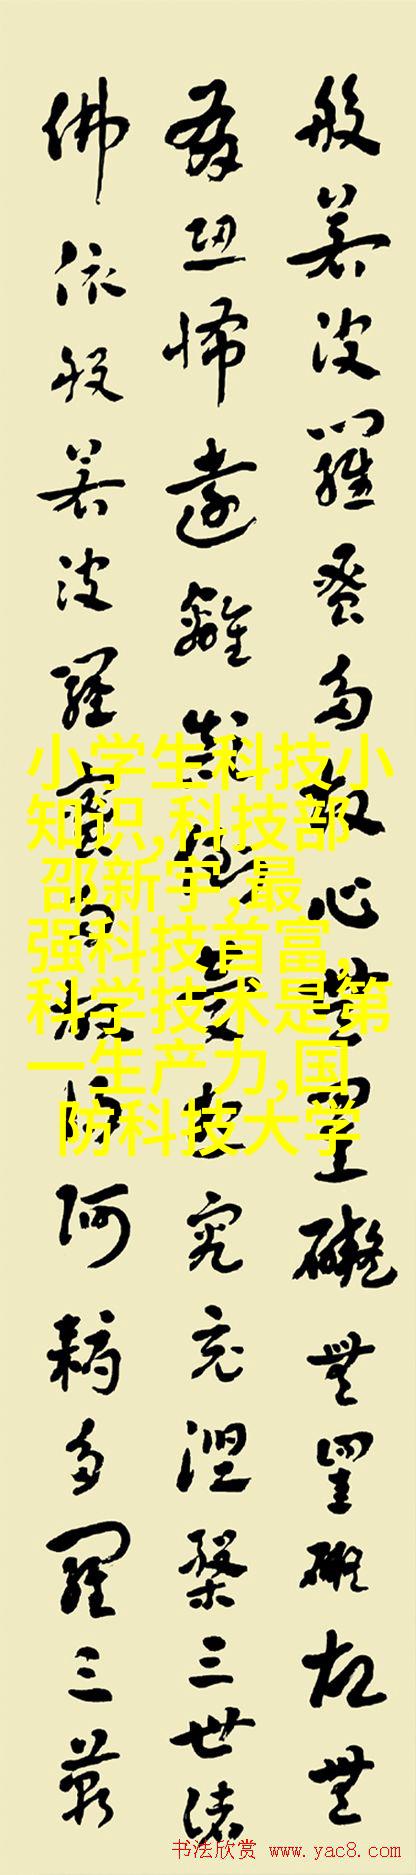 般若波羅蜜多故心無罣礙無罣礙故無
有恐怖遠離顛倒夢想究竟涅槃三世諸
佛依般若波羅蜜多故得阿耨多羅三藐
小学生科技小
知识,科技部
邵新宇,最
强科技首富,
科学技术是第
一生产力,国
防科技大学
书法欣赏 www.yac8.com